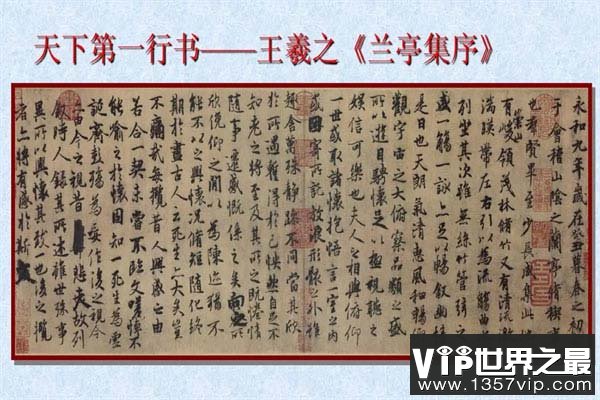 天下第一行书——王羲之《兰亭集序》
永和九年歲在癸丑暮春之初
于會稽山陰之蘭亭脩稧事
也群賢畢至少長咸集此
有崇山峻領茂林脩竹又有清流
湍暎帶左右引以為流觴曲
列坐其次雖無絲竹管弦之
盛一觴一詠亦足以暢敘幽
是日也天朗氣清惠風和暢
觀宇宙之大俯察品類之盛
所以遊目騁懷足以極視聽之
娛信可樂也夫人之相與俯仰
一世或取諸懷抱悟言一室之內
或因寄所託放浪形骸之外雖
趣舍萬殊靜躁不同當其欣
於所遇蹔得於己怏然自足不
知老之將至及其所之既惓情
隨事遷感慨係之矣向之所
欣俛仰之間以為陳迹猶不
能不以之興懷況脩短隨化終
期於盡古人云死生亦大矣豈
不痛哉每攬昔人興感之由
若合一契未嘗不臨文嗟悼不
能喻之於懷固知一死生為虛
誕齊彭殤為妄作後之視今
亦由今之視昔悲夫故列
敘時人錄其所述雖世殊事
異所以興懷其致一也後之攬
者亦將有感於斯文
VIP世界之最
www.1357vip.com